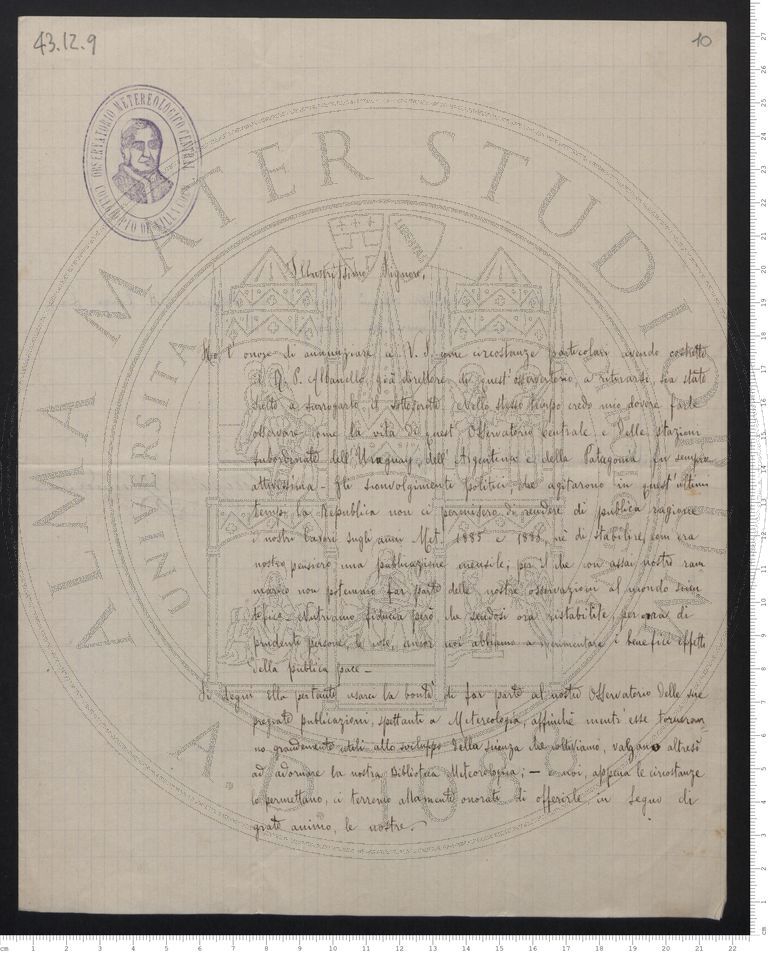 43.12.9
10
OBSERVATORIO METEREOLÓGICO CENTRAL
COLEGIO PIO DE VILLA COLON
ALMA MATER STUDIORUM
UNIVERSITA
A.D. 1088
Illustrissimo Signore,
Ho l'onore di annunziare a V. S. come circostanze particolari avendo costretto
il R. P. Albanello, già direttore di quest'osservatorio, a ritirarsi, sia stato
scelto a surrogarlo il sottoscritto. Nello stesso tempo credo mio dovere farle
osservare come la vita di quest'Osservatorio centrale e delle stazioni
subordinate dell'Uruguay, dell'Argentina e della Patagonia fu sempre
attivissima – Gli sconvolgimenti politici, che agitarono in quest'ultimi
tempi la Repubblica non ci permisero di rendere di pubblica ragione
i nostri lavori sugli anni Met. 1885 e 1886, nè di stabilire, com'era
nostro pensiero una publicazione mensile; per il che con assai nostro ram
marico non potemmo far parte delle nostre osservazioni al mondo scien
tifico – Nutriamo fiducia però che sendosi ora ristabilite, per opra di
prudenti persone, le cose, ancor noi abbiamo a sperimentare i benefici effetti
della publica pace –
Si degni Ella pertanto usarci la bontà di far parte al nostro Osservatorio delle sue
pregiate publicazioni, spettanti a Metereologia, affinchè mentr'esse torneran
no grandemente utili allo sviluppo della scienza che coltiviamo, valgano altresì
ad adornare la nostra Biblioteca Meteorologica; – e noi, appena le circostanze
lo permettano, ci terremo altamente onorati di offerirle, in segno di
grato animo, le nostre.